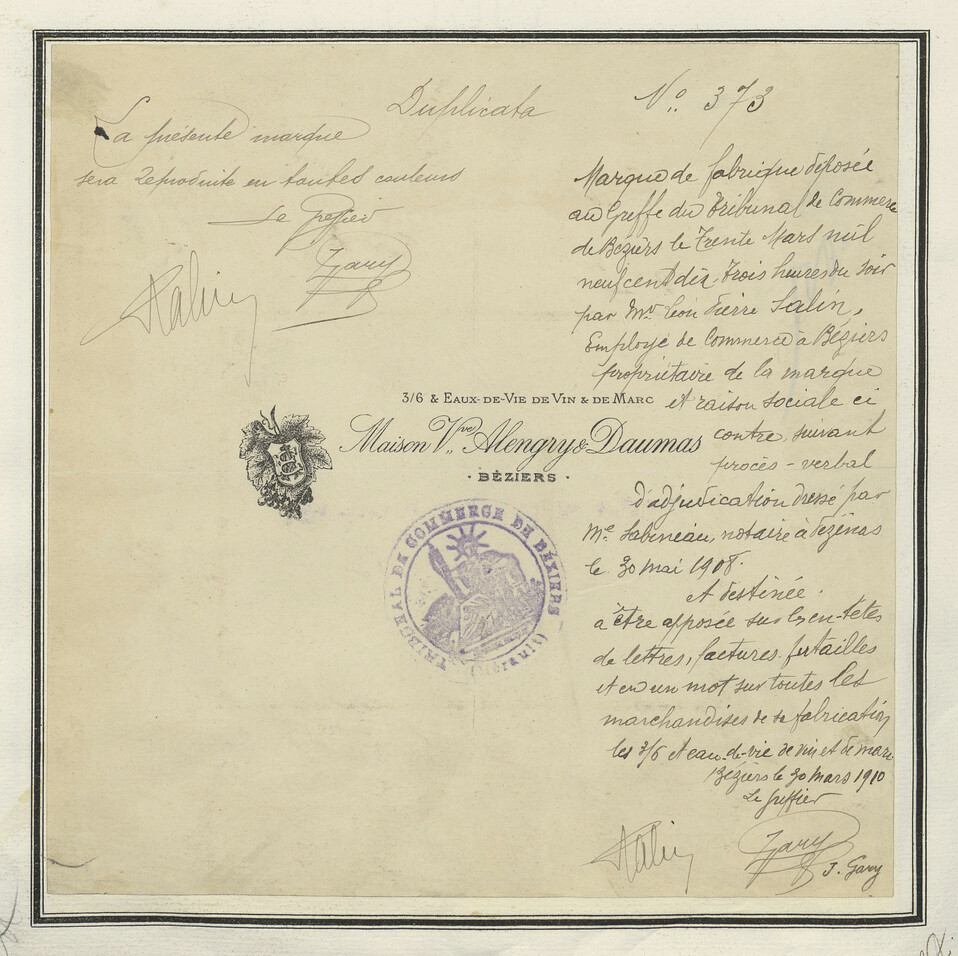 Duplicata
N° 373
La présente marque
sera Reproduite en toutes couleurs
Le Greffier
Gary
Marque de fabrique déposée
au Greffe du Tribunal de Commerce
de Béziers le Trente Mars mil
neuf cent dix Trois heures du soir
par Mr Léon Pierre Salin,
Employé de Commerce à Béziers
propriétaire de la marque
et raison sociale ci
contre, suivant
procès-verbal
d'adjudication dressé par
Me Sabineau, notaire à Pézénas
le 30 mai 1908.
et destinée
à être apposée sur les en-têtes
de lettres, factures, futailles
et en un mot sur toutes les
marchandises de sa fabrication
les 3/6 et eau-de-vie de vin et de marc
Béziers le 30 mars 1910
Le Greffier
Gary
J. Gary
3/6 & EAUX-DE-VIE DE VIN & DE MARC
Maison Vve Alengry & Daumas
· BÉZIERS ·
TRIBUNAL DE COMMERCE DE BÉZIERS
(Hérault)